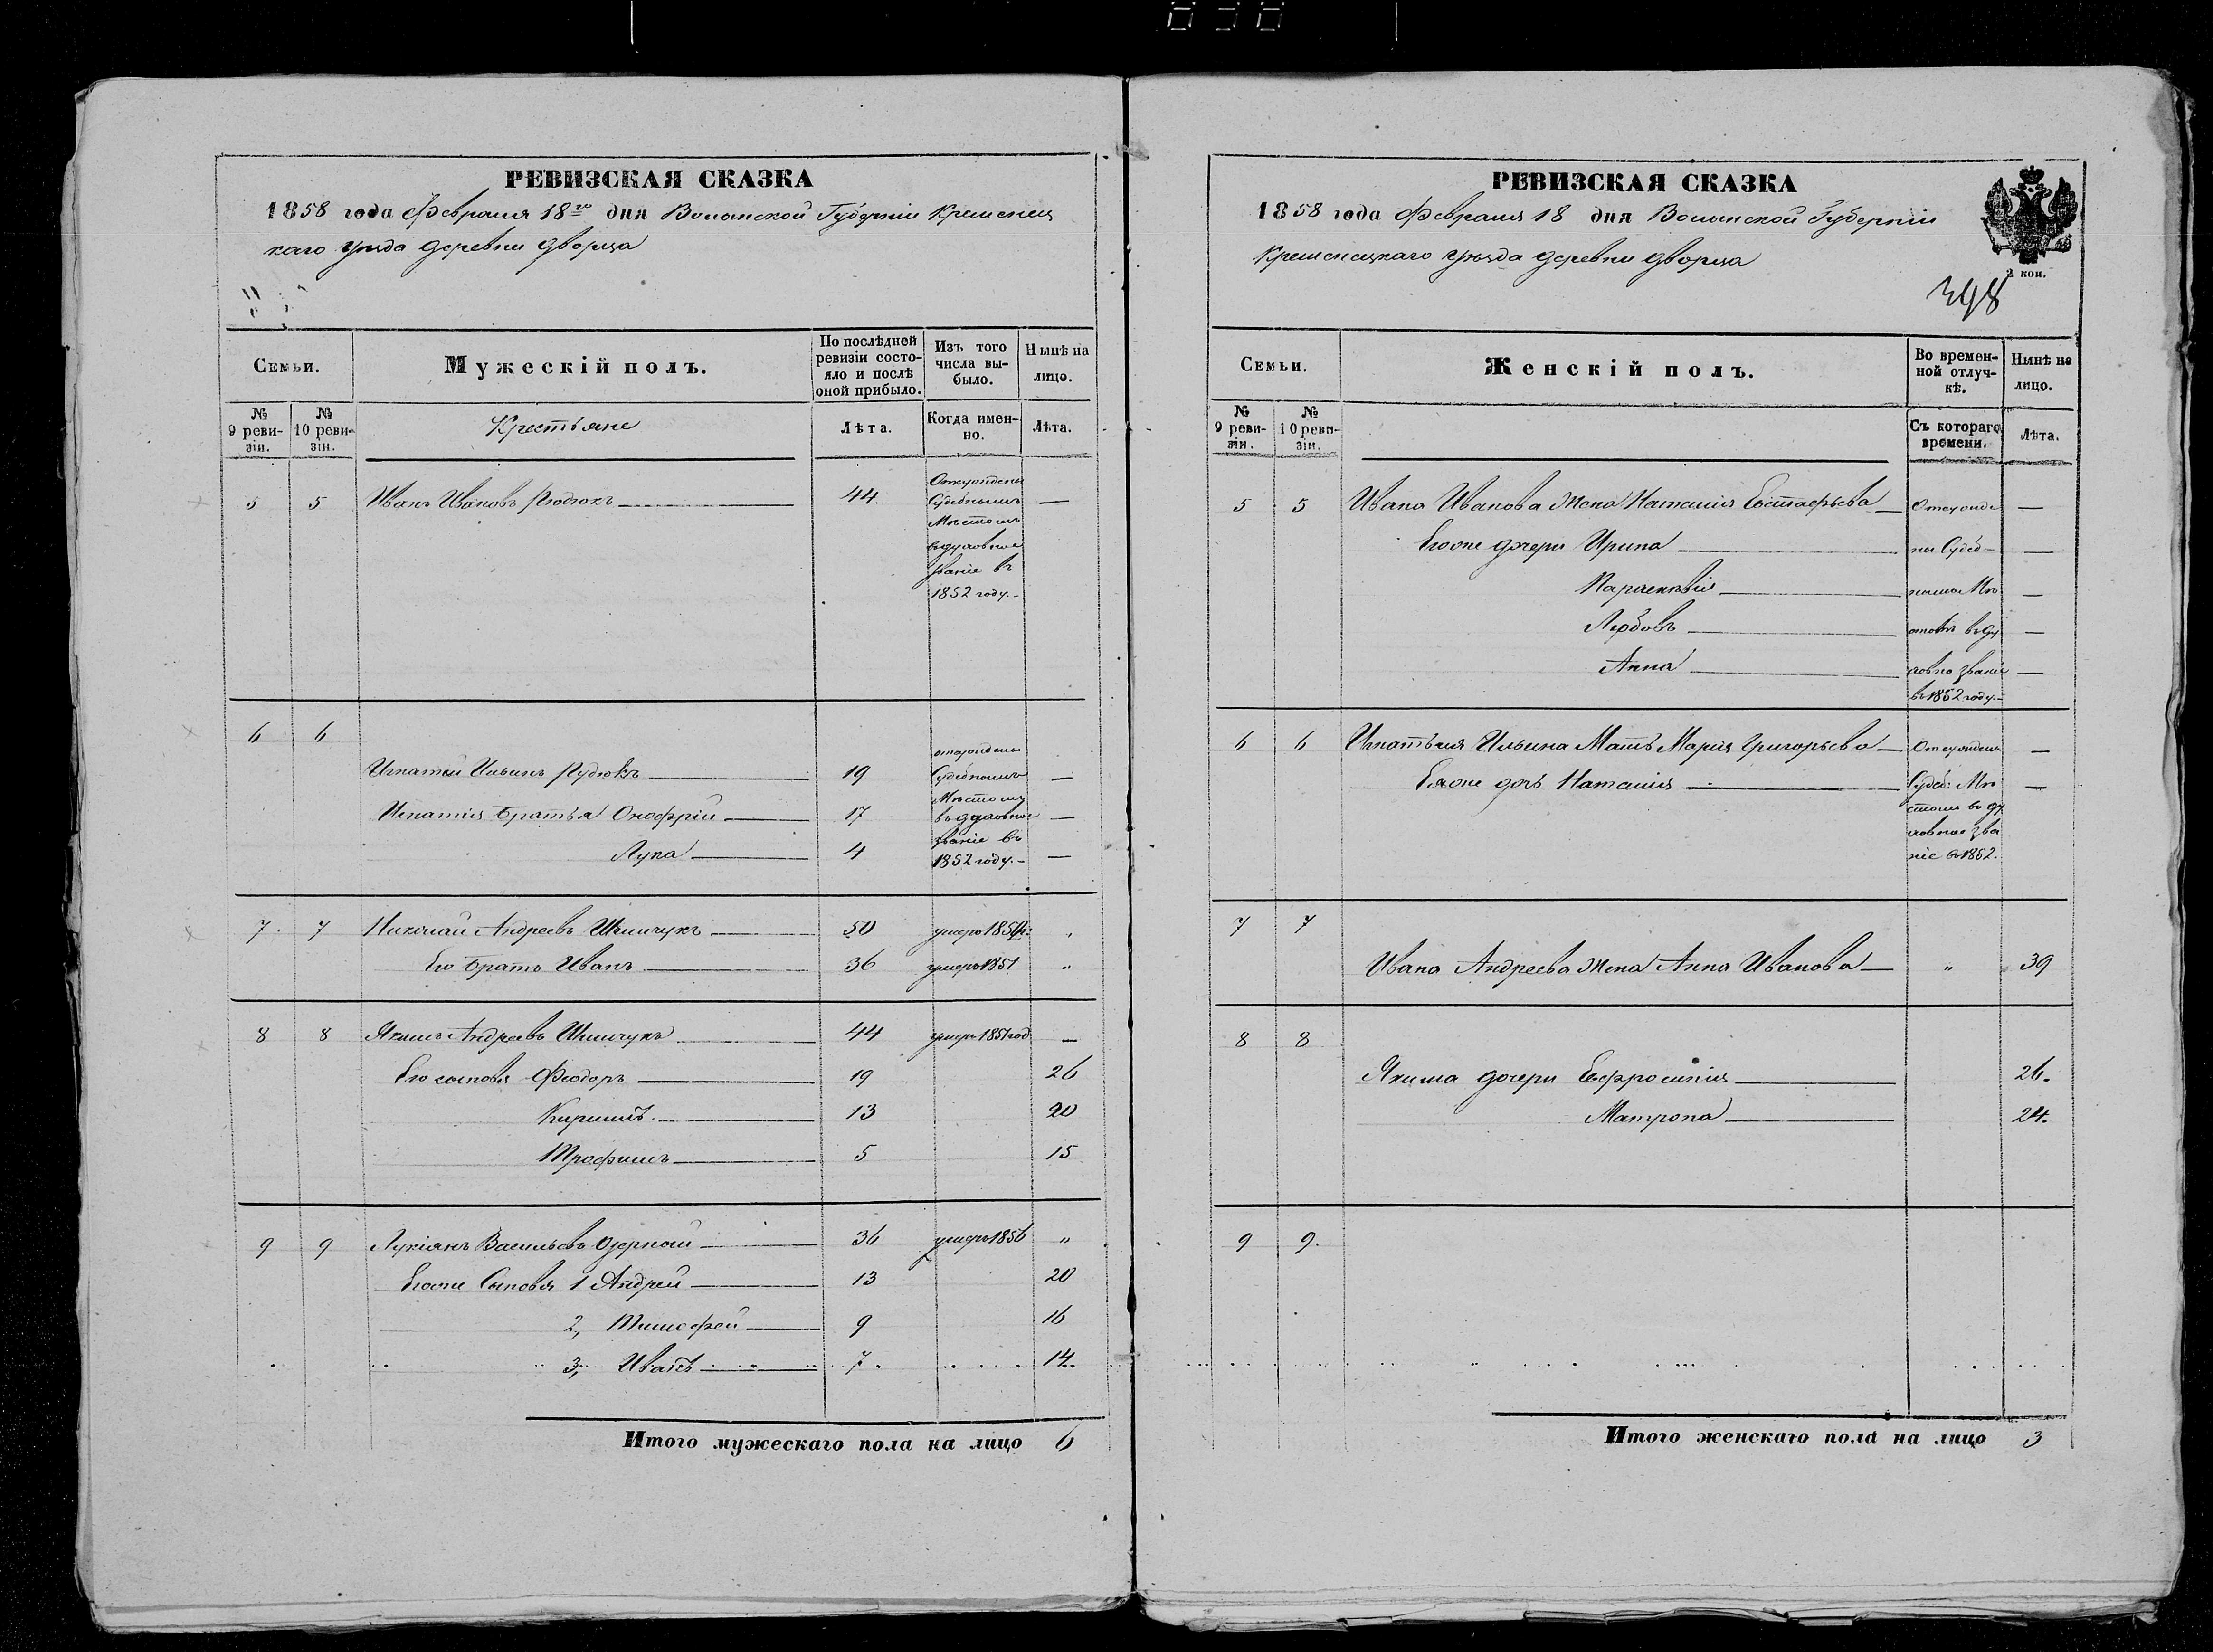 РЕВИЗСКАЯ СКАЗКА
1858 года Февраля 18го дня Волынской Губерніи Кременец
каго уѣзда деревни Дворца
Семьи.
Мужескій полъ.
По послѣдней ревизіи состояло и послѣ оной прибыло.
Изъ того числа выбыло.
Нынѣ на лицо.
№ 9 ревизіи.
№ 10 ревизіи.
Крестьяне
Лѣта.
Когда именно.
Лѣта.
5 5 Иванъ Ивановъ 44
Отсуждены
Судебнымъ
Мѣстомъ
въ духовное
званіе въ
1852 году.
6 6
Игнатій Ильинъ 19
Игнатія Братья Онофрій 17
Лука 4
отсуждены
Судебнымъ
Мѣстомъ
въ духовное
званіе въ
1852 году.
7 7 Николай Андреевъ 50 умеръ
Его Братъ Иванъ 36 умеръ 1851 "
8 8 Якимъ Андреевъ 44 умеръ 1851 год —
Его сыновья Феодоръ 19 26
Кирилъ 13 20
Трофимъ 5 15
9 9 Лукіянъ Васильевъ Озерной 36 умеръ 1856 "
Егоже Сыновья 1 Андрей 13 20
2, Тимофей 9 16
3, Иванъ 7 14
Итого мужескаго пола на лицо 6
РЕВИЗСКАЯ СКАЗКА
1858 года Февраля 18 дня Волынской Губерніи
Кременецкаго уѣзда деревни Дворца
2 коп.
398
Семьи.
Женскій полъ.
Во временной отлучкѣ.
Нынѣ на лицо.
№ 9 ревизіи.
№ 10 ревизіи.
Съ котораго времени.
Лѣта.
5 5 Ивана Иванова Жена Наталія Евстафьева Отсужде —
Егоже дочери Ирина ны Судеб —
Параскевія нымъ Мѣ —
Любовь стомъ въ ду —
Анна ховно званіе —
въ 1852 году.
6 6 Игнатія Ильина Мать Марія Григорьева Отсуждены —
Еяже дочь Наталія Судеб: Мѣ —
стомъ въ ду
ховное зва
ніе въ 1852.
7 7
Ивана Андреева Жена Анна Иванова " 39
8 8
Якима дочери Евфросинія 26.
Матрона 24.
9 9.
Итого женскаго пола на лицо 3